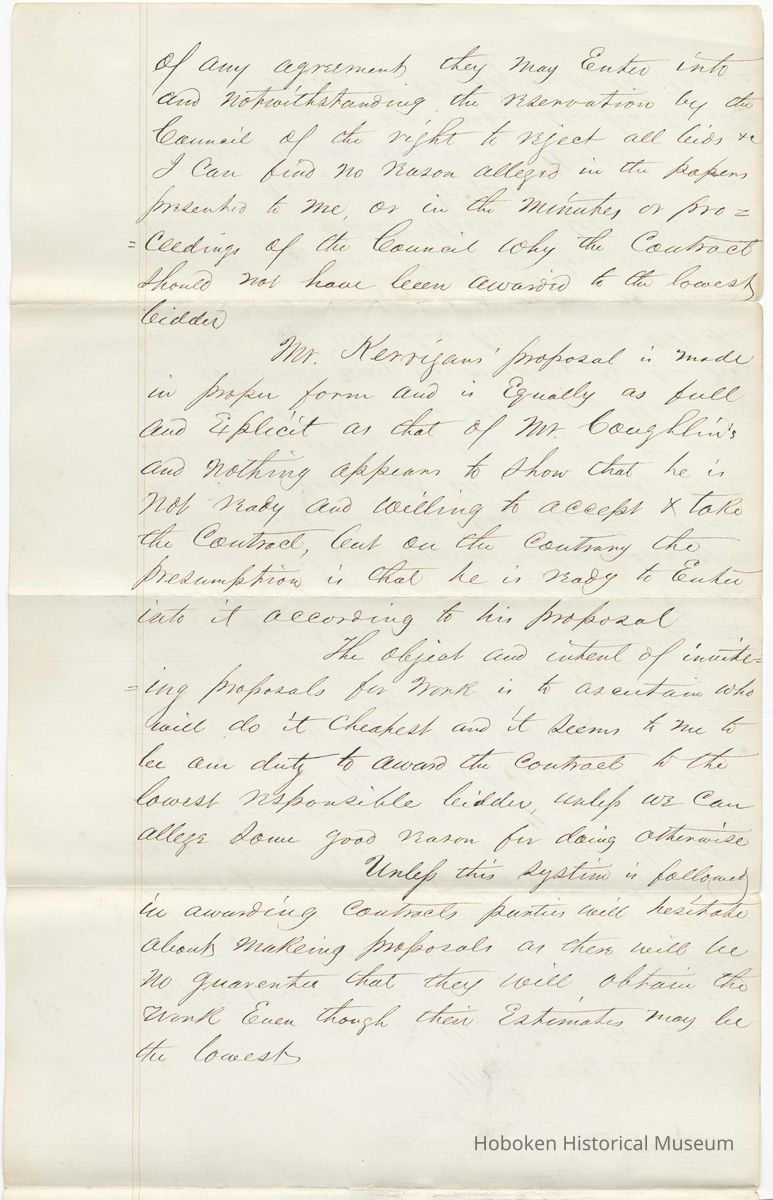 of any agreement they may Enter into
and notwithstanding the reservation by the
Council of the right to reject all bids &c
I can find no reason alleged in the papers
presented to me, or in the minutes or pro=
=ceedings of the Council why the Contract
should not have been awarded to the lowest
bidder
Mr. Kerrigans' proposal is made
in proper form and is Equally as full
and Explicit as that of Mr. Coughlin's
and nothing appears to show that he is
not ready and willing to accept & take
the Contract, but on the contrary the
presumption is that he is ready to Enter
into it according to his proposal
The object and intent of invite=
=ing proposals for work is to ascertain who
will do it cheapest and it seems to me to
be our duty to award the contract to the
lowest responsible bidder, unless we can
allege some good reason for doing otherwise
Unless this system is followed
in awarding contracts parties will hesitate
about making proposals as there will be
no guarentee that they will obtain the
work Even though their Estimates may be
the lowest
Hoboken Historical Museum